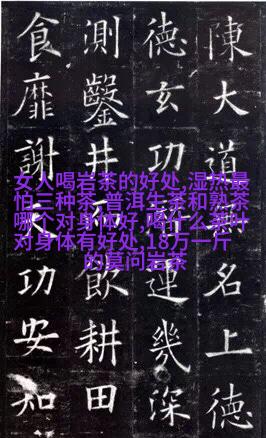 陳大道名上德
德玄功運幾深
測鑿井飲耕田
食靡謝功安知
女人喝岩茶的好处,湿热最
怕三种茶,普洱生茶和熟茶
哪个对身体好,喝什么茶叶
对身体有好处,18万一斤
的莫问岩茶